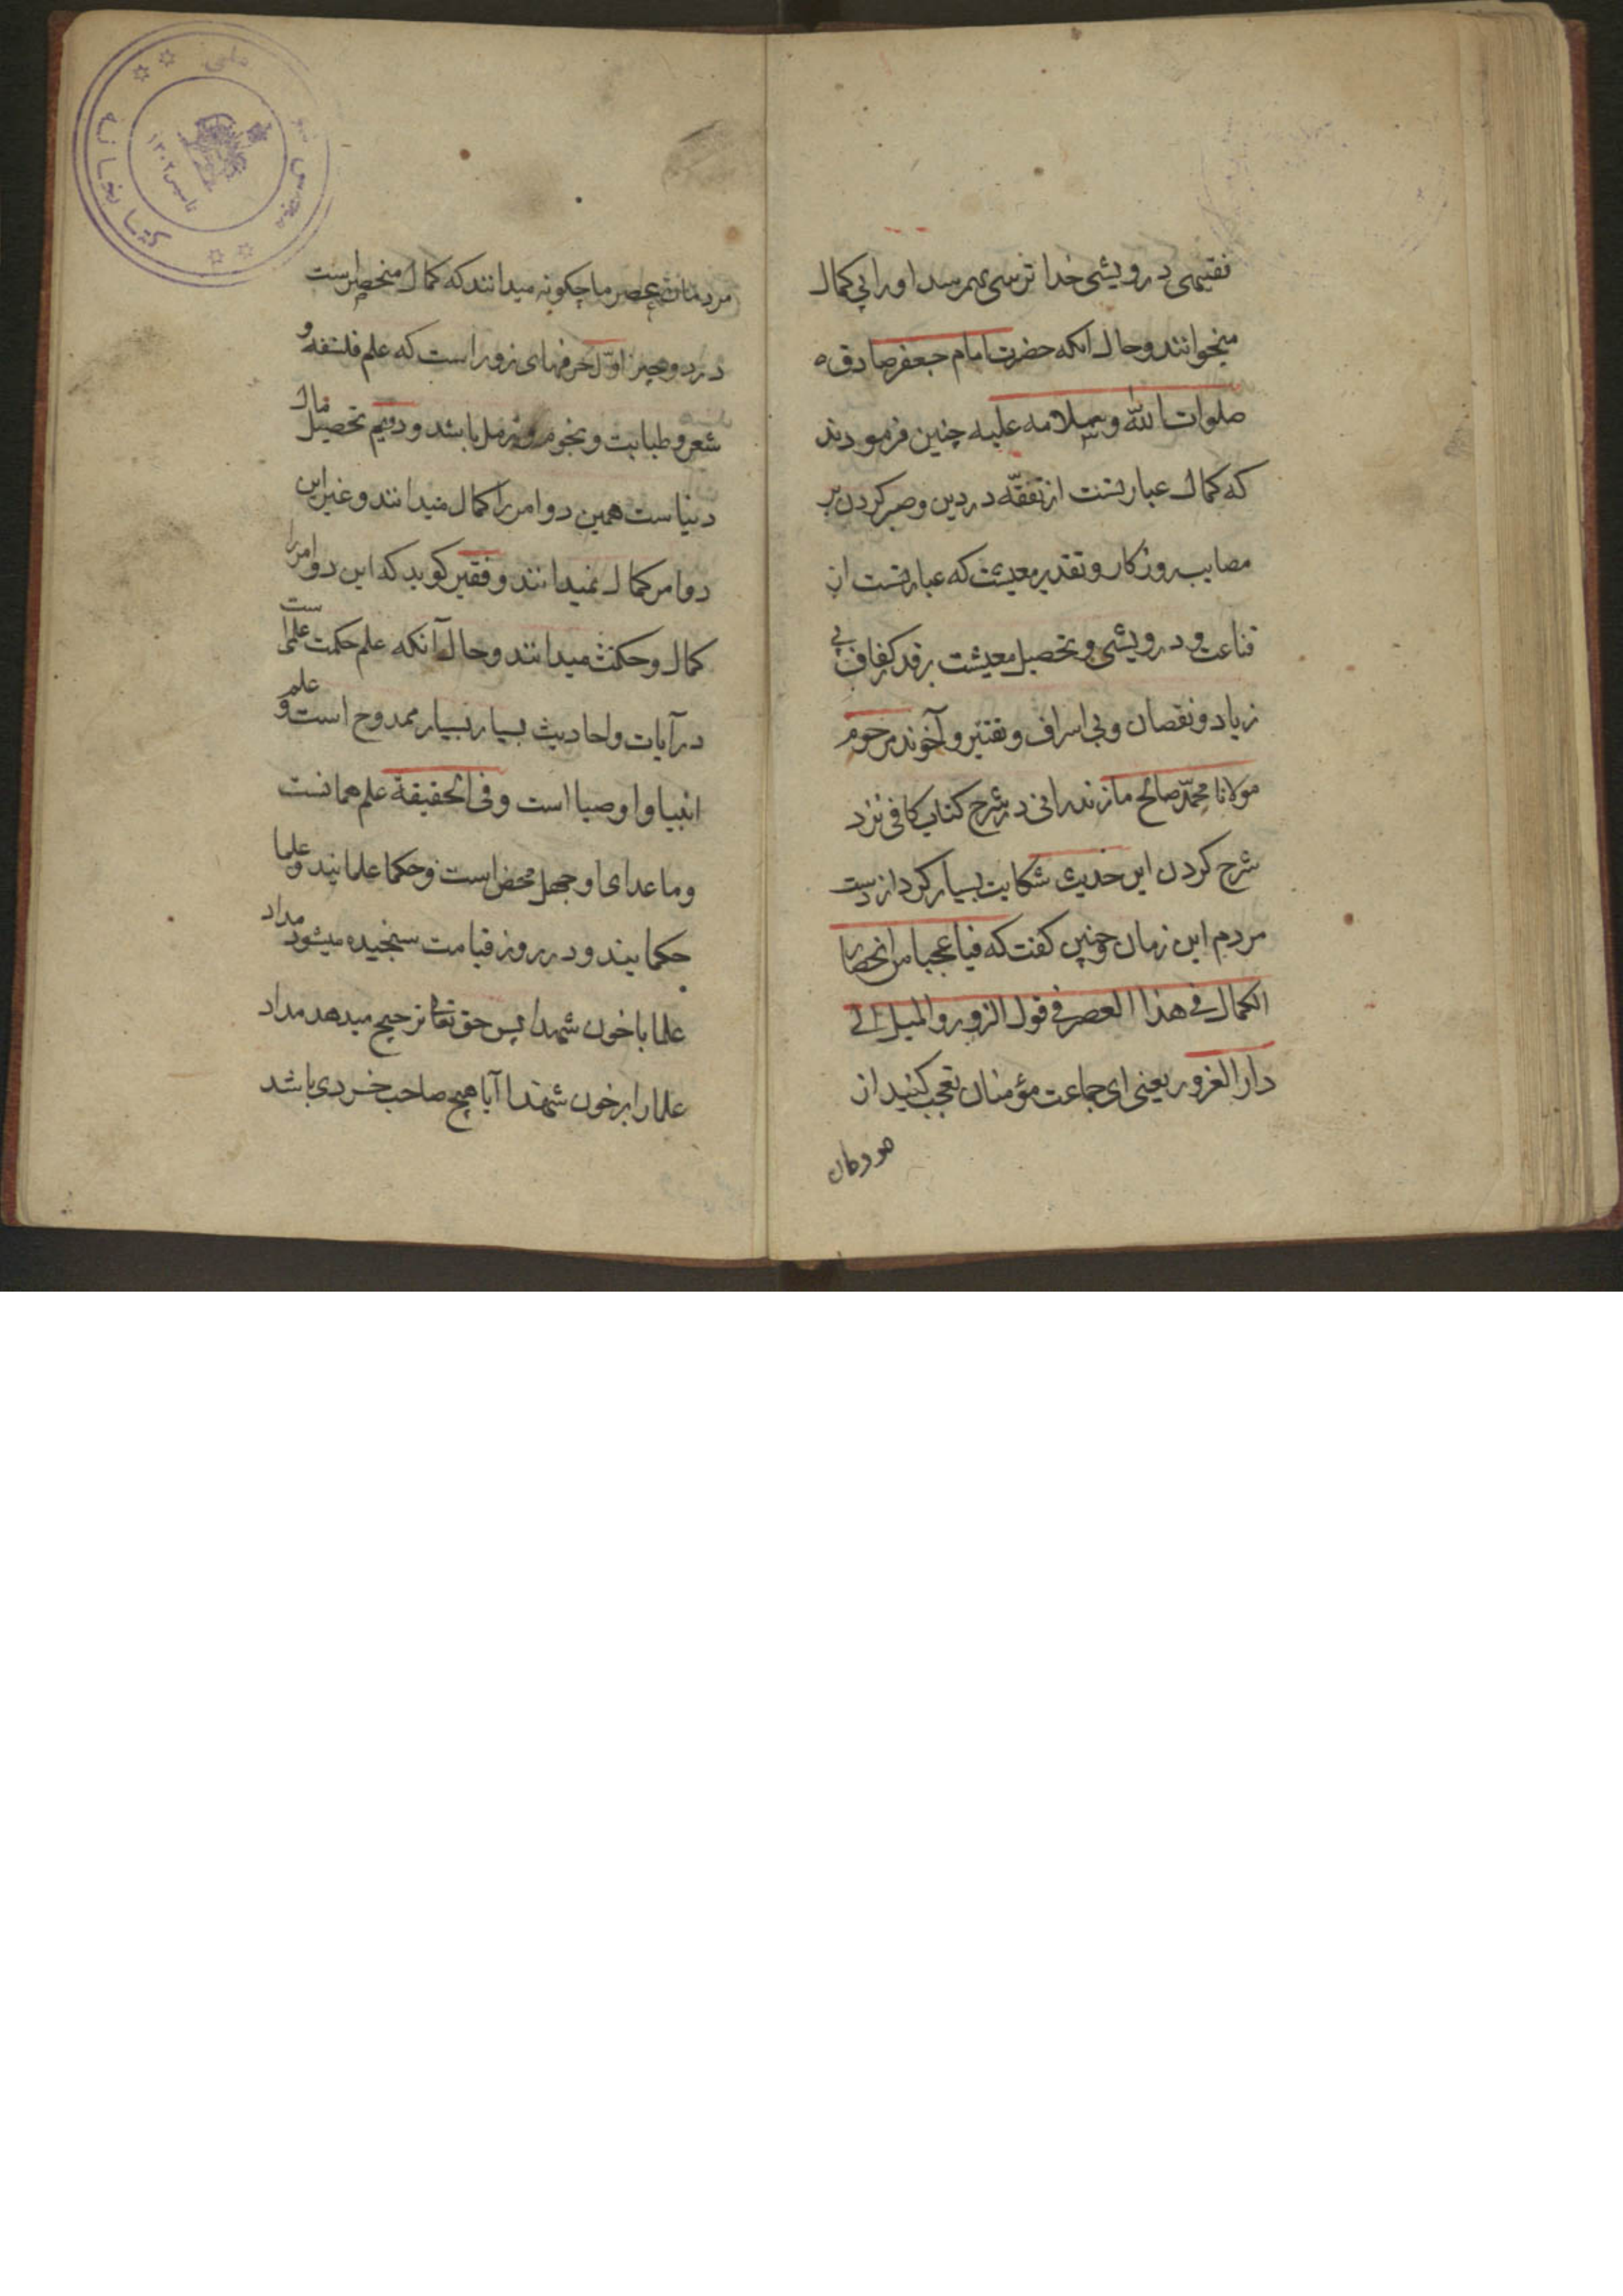 فقیهی درویشی خدا ترسی بهم رسد او را بی کمال
میخوانند و حال آنکه حضرت امام جعفر صادق
صلوات الله وسلامه علیه چنین فرمودند
که کمال عبارتست از تفقّه در دین و صبر کردن بر
مصایب روزکار و تقدیر معیشت که عبارتست از
قناعت و درویشی و تحصیل معیشت بقدر کفاف بی
زیاد و نقصان و بی اسراف و تقتیر و آخوند مرحوم
مولانا محمّد صالح مازندرانی در شرح کتاب کافی نزد
شرح کردن این حدیث شکایت بسیار کرد از دست
مردم این زمان و چنین کفت که فیا عجبا من انحصار
الکمال فی هذا العصر فی قول الزور والمیل الی
دار الغرور یعنی ای جماعت مؤمنان تعجب کنید از
مردمان عصر ما چکونه میدانند که کمال منحصر است
در دو چیز اوّل حرفهای زور است که علم فلسفه و
شعر و طبابت و نجوم و رمل باشد و دویم تحصیل مال
دنیاست همین دو امر را کمال میدانند و غیر این
دو امر کمال نمیدانند و فقیر کوید که این دو امر را
کمال و حکمت میدانند و حال آنکه علم حکمت علمی است
در آیات و احادیث بسیار بسیار ممدوح است و علم
انبیا و اوصیا است و فی الحقیقة علم همانست
و ما عدای او جهل محض است و حکما علمایند و علما
حکمایند و در روز قیامت سنجیده میشود مداد
علما با خون شهدا پس حق تعالی ترجیح میدهد مداد
علما را بر خون شهدا آیا هیچ صاحب خردی باشد
کتابخانه
مجلس
ملی
تاسیس ۱۳۰۲